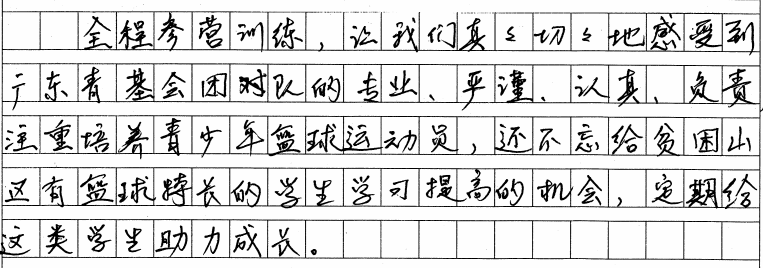 全程参营训练，让我们真々切々地感受到
广东青基会团对队的专业、严谨、认真、负责，
注重培养青少年篮球运动员，还不忘给贫困山
区有篮球特长的学生学习提高的机会，定期给
这类学生助力成长。